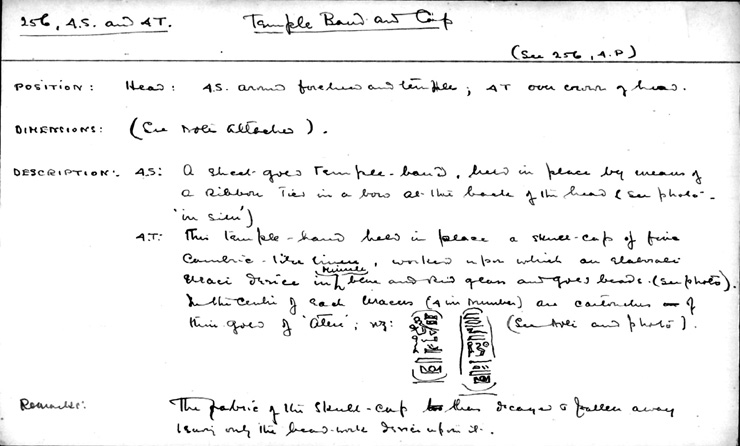 256, A.S. and A.T. Temple Band and Cap
(See 256, A.P)
POSITION: Head: A.S. around forehead and temple; A.T over crown of head.
DIMENSIONS: (See Note attached).
DESCRIPTION: A.S: A sheet-gold Temple-band, held in place by means of
a Ribbon Tied in a bow at the back of the head (See photo-
'in situ')
A.T: This temple-band held in place a skull-cap of fine
Cambric-like linen, worked upon which an elaborate
Uraei device in minute blue and red glass and gold beads. (See photo).
In the centre of each Uraeus (4 in number) are cartouches of
thin gold of 'Aten'; viz: (See Note and photo).
Remarks: The fabric of the skull-cap has decayed & fallen away
leaving only the bead-work device upon it.